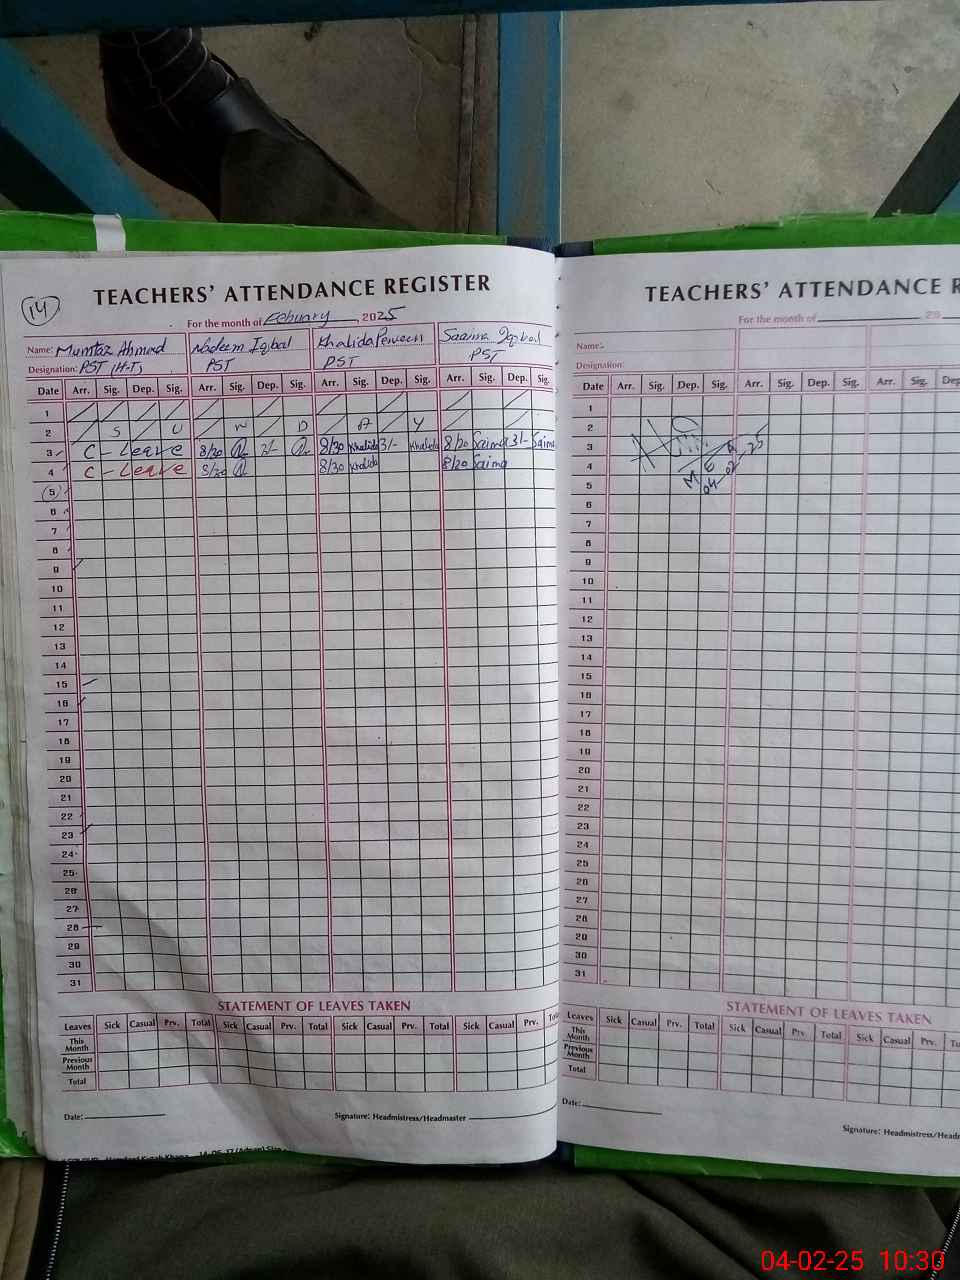 14
TEACHERS' ATTENDANCE REGISTER
For the month of February, 2025
Name: Mumtaz Ahmad Nadeem Iqbal Khalida Perveen Saaima Iqbal
Designation: PST (H-T) PST PST PST
Date Arr. Sig. Dep. Sig. Arr. Sig. Dep. Sig. Arr. Sig. Dep. Sig. Arr. Sig. Dep. Sig.
1
2 S U N D A Y
3 C - Leave 8/20 3/- 8/30 Khalida 3/- Khalida 8/20 Saima 3/- Saima
4 C - Leave 8/20 8/30 Khalida 8/20 Saima
5
6
7
8
9
10
11
12
13
14
15
16
17
18
19
20
21
22
23
24
25
26
27
28
29
30
31
STATEMENT OF LEAVES TAKEN
Leaves Sick Casual Prv. Total Sick Casual Prv. Total Sick Casual Prv. Total Sick Casual Prv. Tota
This Month
Previous Month
Total
Date:
Signature: Headmistress/Headmaster
TEACHERS' ATTENDANCE R
For the month of 20
Name:
Designation:
Date Arr. Sig. Dep. Sig. Arr. Sig. Dep. Sig. Arr. Sig. Dep
1
2
3
4
5
M E A
04-02-25
6
7
8
9
10
11
12
13
14
15
16
17
18
19
20
21
22
23
24
25
26
27
28
29
30
31
STATEMENT OF LEAVES TAKEN
Leaves Sick Casual Prv. Total Sick Casual Prv. Total Sick Casual Prv. To
This Month
Previous Month
Total
Date:
Signature: Headmistress/Head
04-02-25 10:30